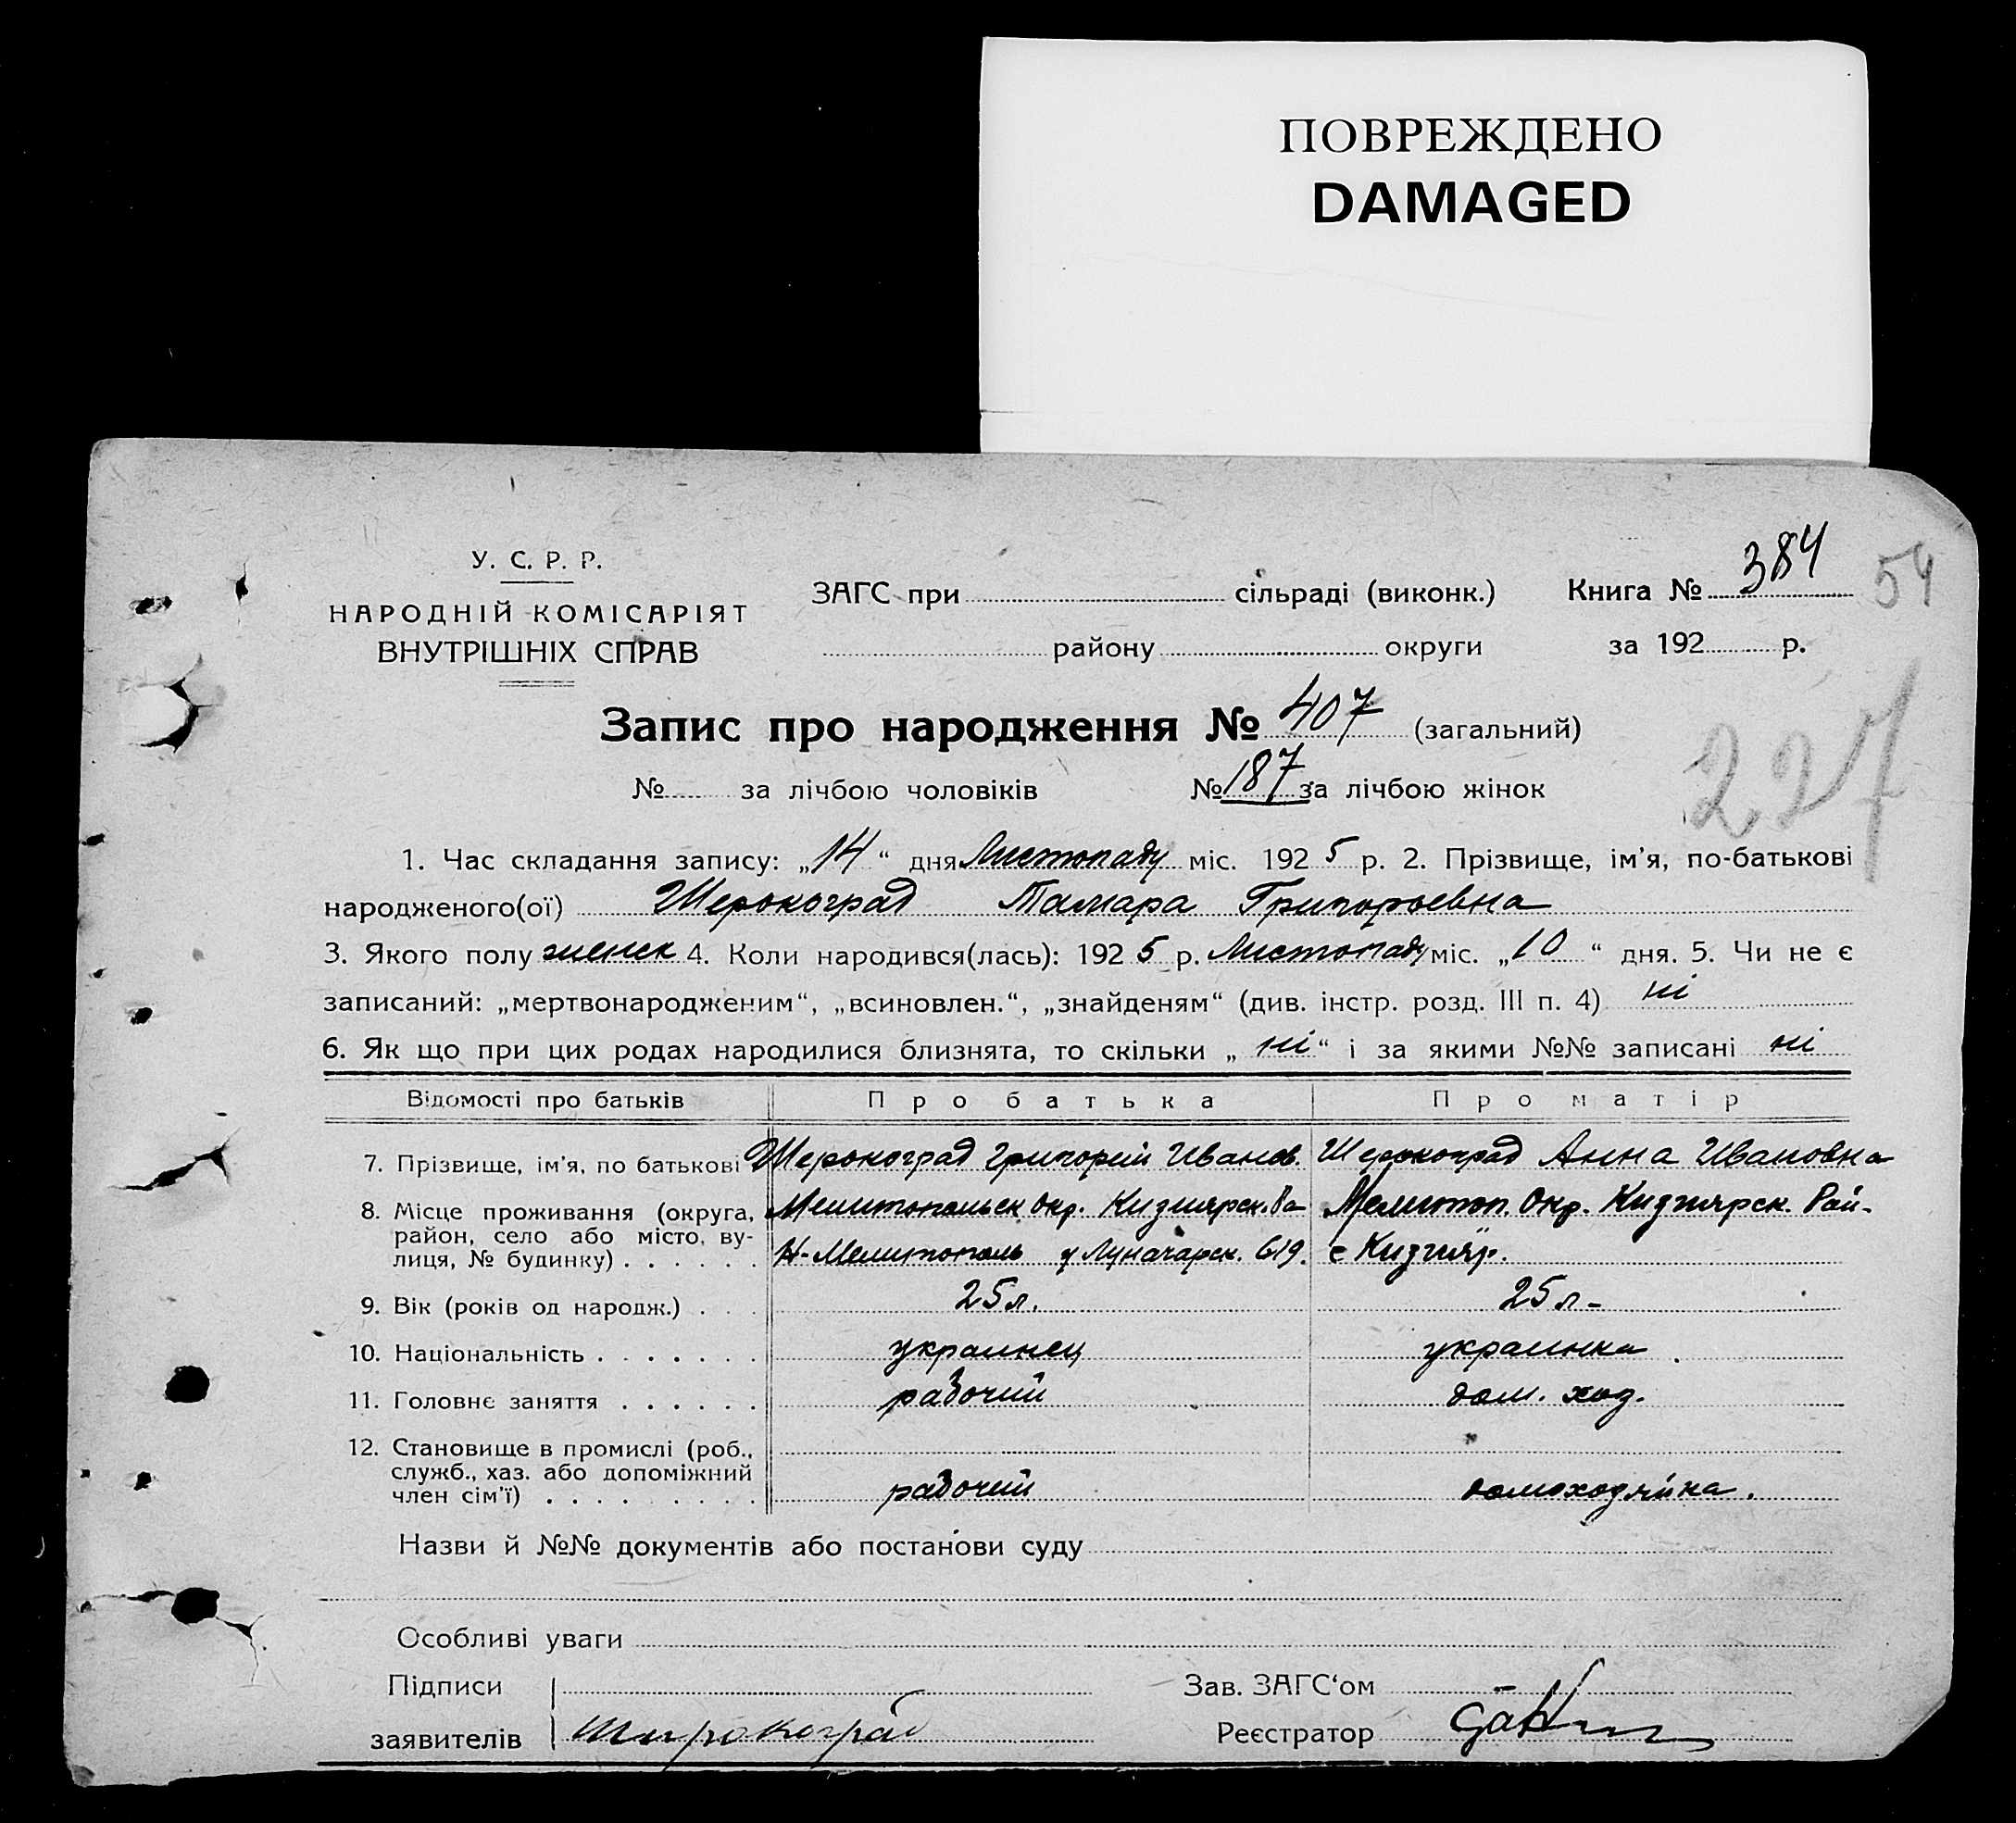 ПОВРЕЖДЕНО
DAMAGED
У. С. Р. Р.
НАРОДНІЙ КОМІСАРІЯТ
ВНУТРІШНІХ СПРАВ
ЗАГС при сільраді (виконк.) Книга № 384 54
району округи за 192 р.
Запис про народження № 407 (загальний)
227
№ за лічбою чоловіків № 187 за лічбою жінок
1. Час складання запису: „14“ дня Листопаду міс. 1925 р. 2. Прізвище, ім'я, по-батькові
народженого(ої) Шерокоград Тамара Григорьевна
3. Якого полу женск 4. Коли народився(лась): 1925 р. Листопаду міс. „10“ дня. 5. Чи не є
записаний: „мертвонародженим“, „всиновлен.“, „знайденям“ (див. інстр. розд. III п. 4) ні
6. Як що при цих родах народилися близнята, то скільки „ні“ і за якими №№ записані ні
Відомості про батьків Про батька Про матір
7. Прізвище, ім'я, по батькові Шерокоград Григорий Иванов. Шерокоград Анна Ивановна
8. Місце проживання (округа, Мелитопольск окр. Кизиярск. Ра- Мелитоп. Окр. Кизиярск. Рай-
район, село або місто, ву-
лиця, № будинку) . . . . . . Н-Мелитополь у Луначарск. 619. с Кизияр.
9. Вік (років од народж.) . . . 25 л. 25 л-
10. Національність . . . . . . . украинец украинка.
11. Головне заняття . . . . . . рабочий дом. хоз.
12. Становище в промислі (роб.,
служб., хаз. або допоміжний
член сім'ї) . . . . . . . . . рабочий домохозяйка.
Назви й №№ документів або постанови суду
Особливі уваги
Підписи Зав. ЗАГС‘ом
заявителів Широкоград Реєстратор